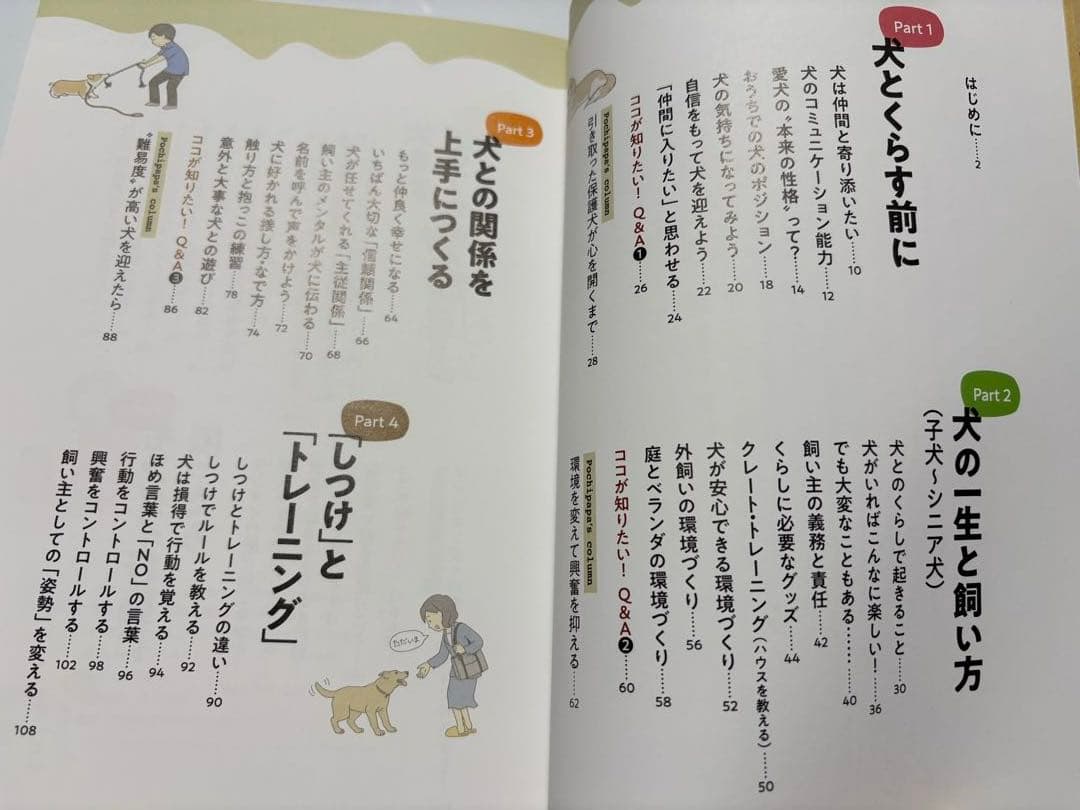 はじめに……2
Part 1
犬とくらす前に
犬は仲間と寄り添いたい……10
犬のコミュニケーション能力……12
愛犬の“本来の性格”って?……14
おうちでの犬のポジション……18
犬の気持ちになってみよう……20
自信をもって犬を迎えよう……22
「仲間に入りたい」と思わせる……24
ココが知りたい! Q&A❶……26
Pochipapa's column
引き取った保護犬が心を開くまで……28
Part 2
犬の一生と飼い方
(子犬〜シニア犬)
犬とのくらしで起きること……30
犬がいればこんなに楽しい!……36
でも大変なこともある……40
飼い主の義務と責任……42
くらしに必要なグッズ……44
クレート・トレーニング(ハウスを教える)……50
犬が安心できる環境づくり……52
外飼いの環境づくり……56
庭とベランダの環境づくり……58
ココが知りたい! Q&A❷……60
Pochipapa's column
環境を変えて興奮を抑える……62
Part 3
犬との関係を
上手につくる
もっと仲良く幸せになる……64
いちばん大切な「信頼関係」……66
犬が任せてくれる「主従関係」……68
飼い主のメンタルが犬に伝わる……70
名前を呼んで声をかけよう……72
犬に好かれる接し方・なで方……74
触り方と抱っこの練習……78
意外と大事な犬との遊び……82
ココが知りたい! Q&A❸……86
Pochipapa's column
“難易度”が高い犬を迎えたら……88
Part 4
「しつけ」と
「トレーニング」
しつけとトレーニングの違い……90
しつけでルールを教える……92
犬は損得で行動を覚える……94
ほめ言葉と「NO」の言葉……96
行動をコントロールする……98
興奮をコントロールする……102
飼い主としての「姿勢」を変える……108
ただいま